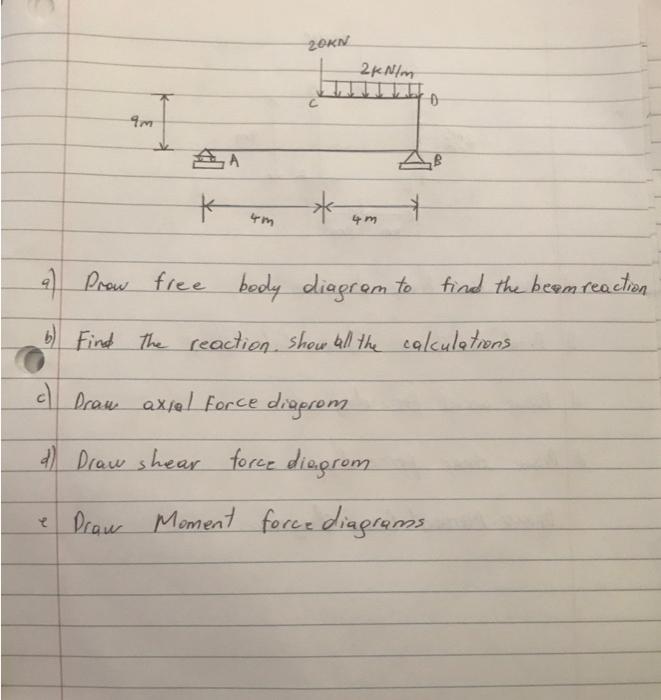 20KN
2KN/m
C
D
9m
A
B
4m
4m
a) Draw free body diagram to find the beam reaction
b) Find The reaction. show all the calculations
c) Draw axial Force diagrom
d) Draw shear force diagrom
e Draw Moment force diagrams